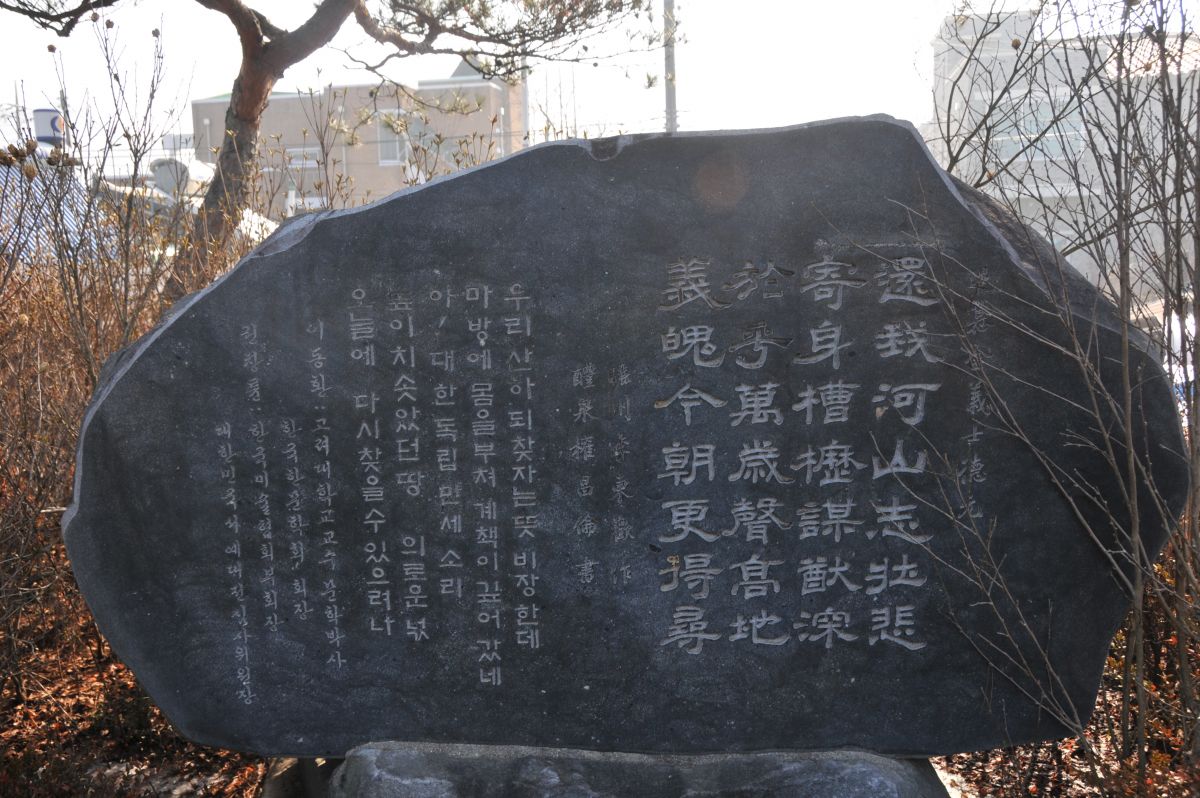 義士德元
還我河山志壯悲
寄身槽櫪謀猷深
於乎萬歲聲高地
義魄今朝更得尋
州李東歡作
醴泉權昌倫書
우리산하 되찾자는뜻 비장한데
마방에 몸을부쳐 계책이깊어갔네
아, 대한독립만세소리
높이치솟았던땅 의로운넋
오늘에 다시찾을수있으려나
이동환:고려대학교교수문학박사
한국한문학회회장
권창륜:한국미술협회부회장
대한민국서예대전심사위원장